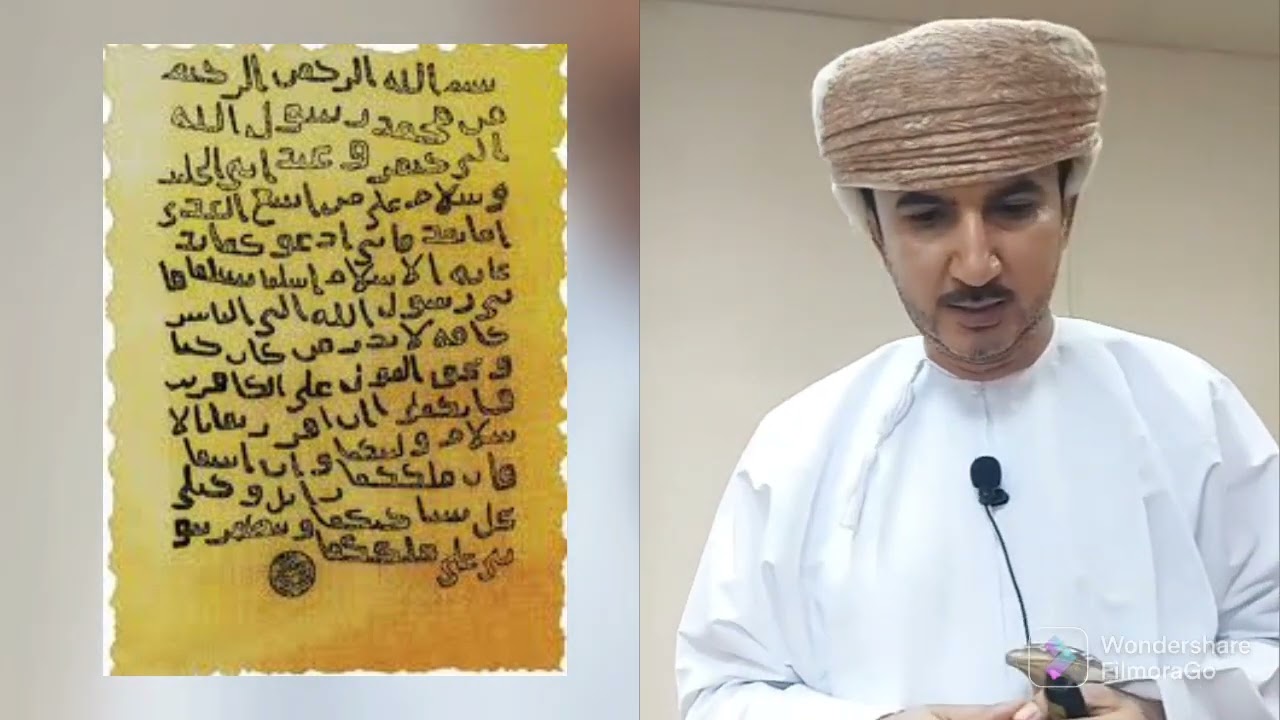 بسم الله الرحمن الرحيم
من محمد رسول الله
الى جيفر و عبد ابني الجلند
و سلام على من اتبع الهدى
اما بعد فاني ادعو كما بد
عايه الاسلام اسلما تسلما فا
ني رسول الله الى الناس
كافه لانذر من كان حيا
و يحق القول على الكافرين
فانكما ان اقررتما بالا
سلام وليتكما و ان ابيتما
فان ملككما زايل و خيلي
تحل بساحتكما و تظهر نبو
تي على ملككما
Wondershare
FilmoraGo